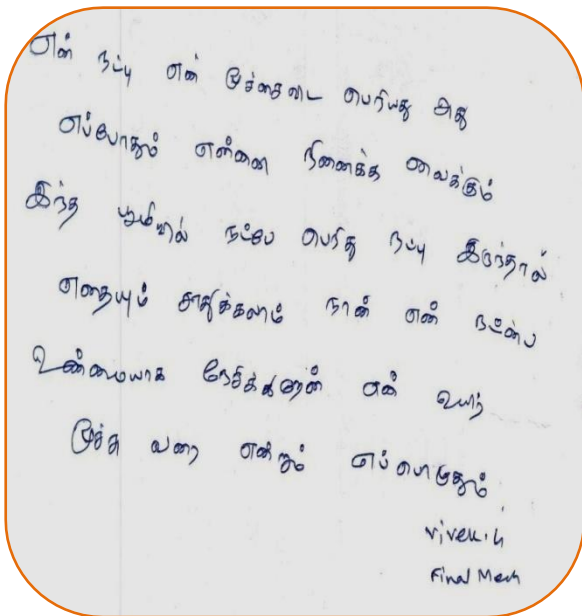 என் நட்பு என் மூச்சைவிட பெரியது அது
எப்போதும் என்னை நினைக்க வைக்கும்
இந்த பூமியில் நட்பே பெரிது நட்பு இருந்தால்
எதையும் சாதிக்கலாம் நான் என் நட்பை
உண்மையாக நேசிக்கிறேன் என் உயிர்
மூச்சு வரை என்றும் எப்பொழுதும்
Vivek.h
Final Mech